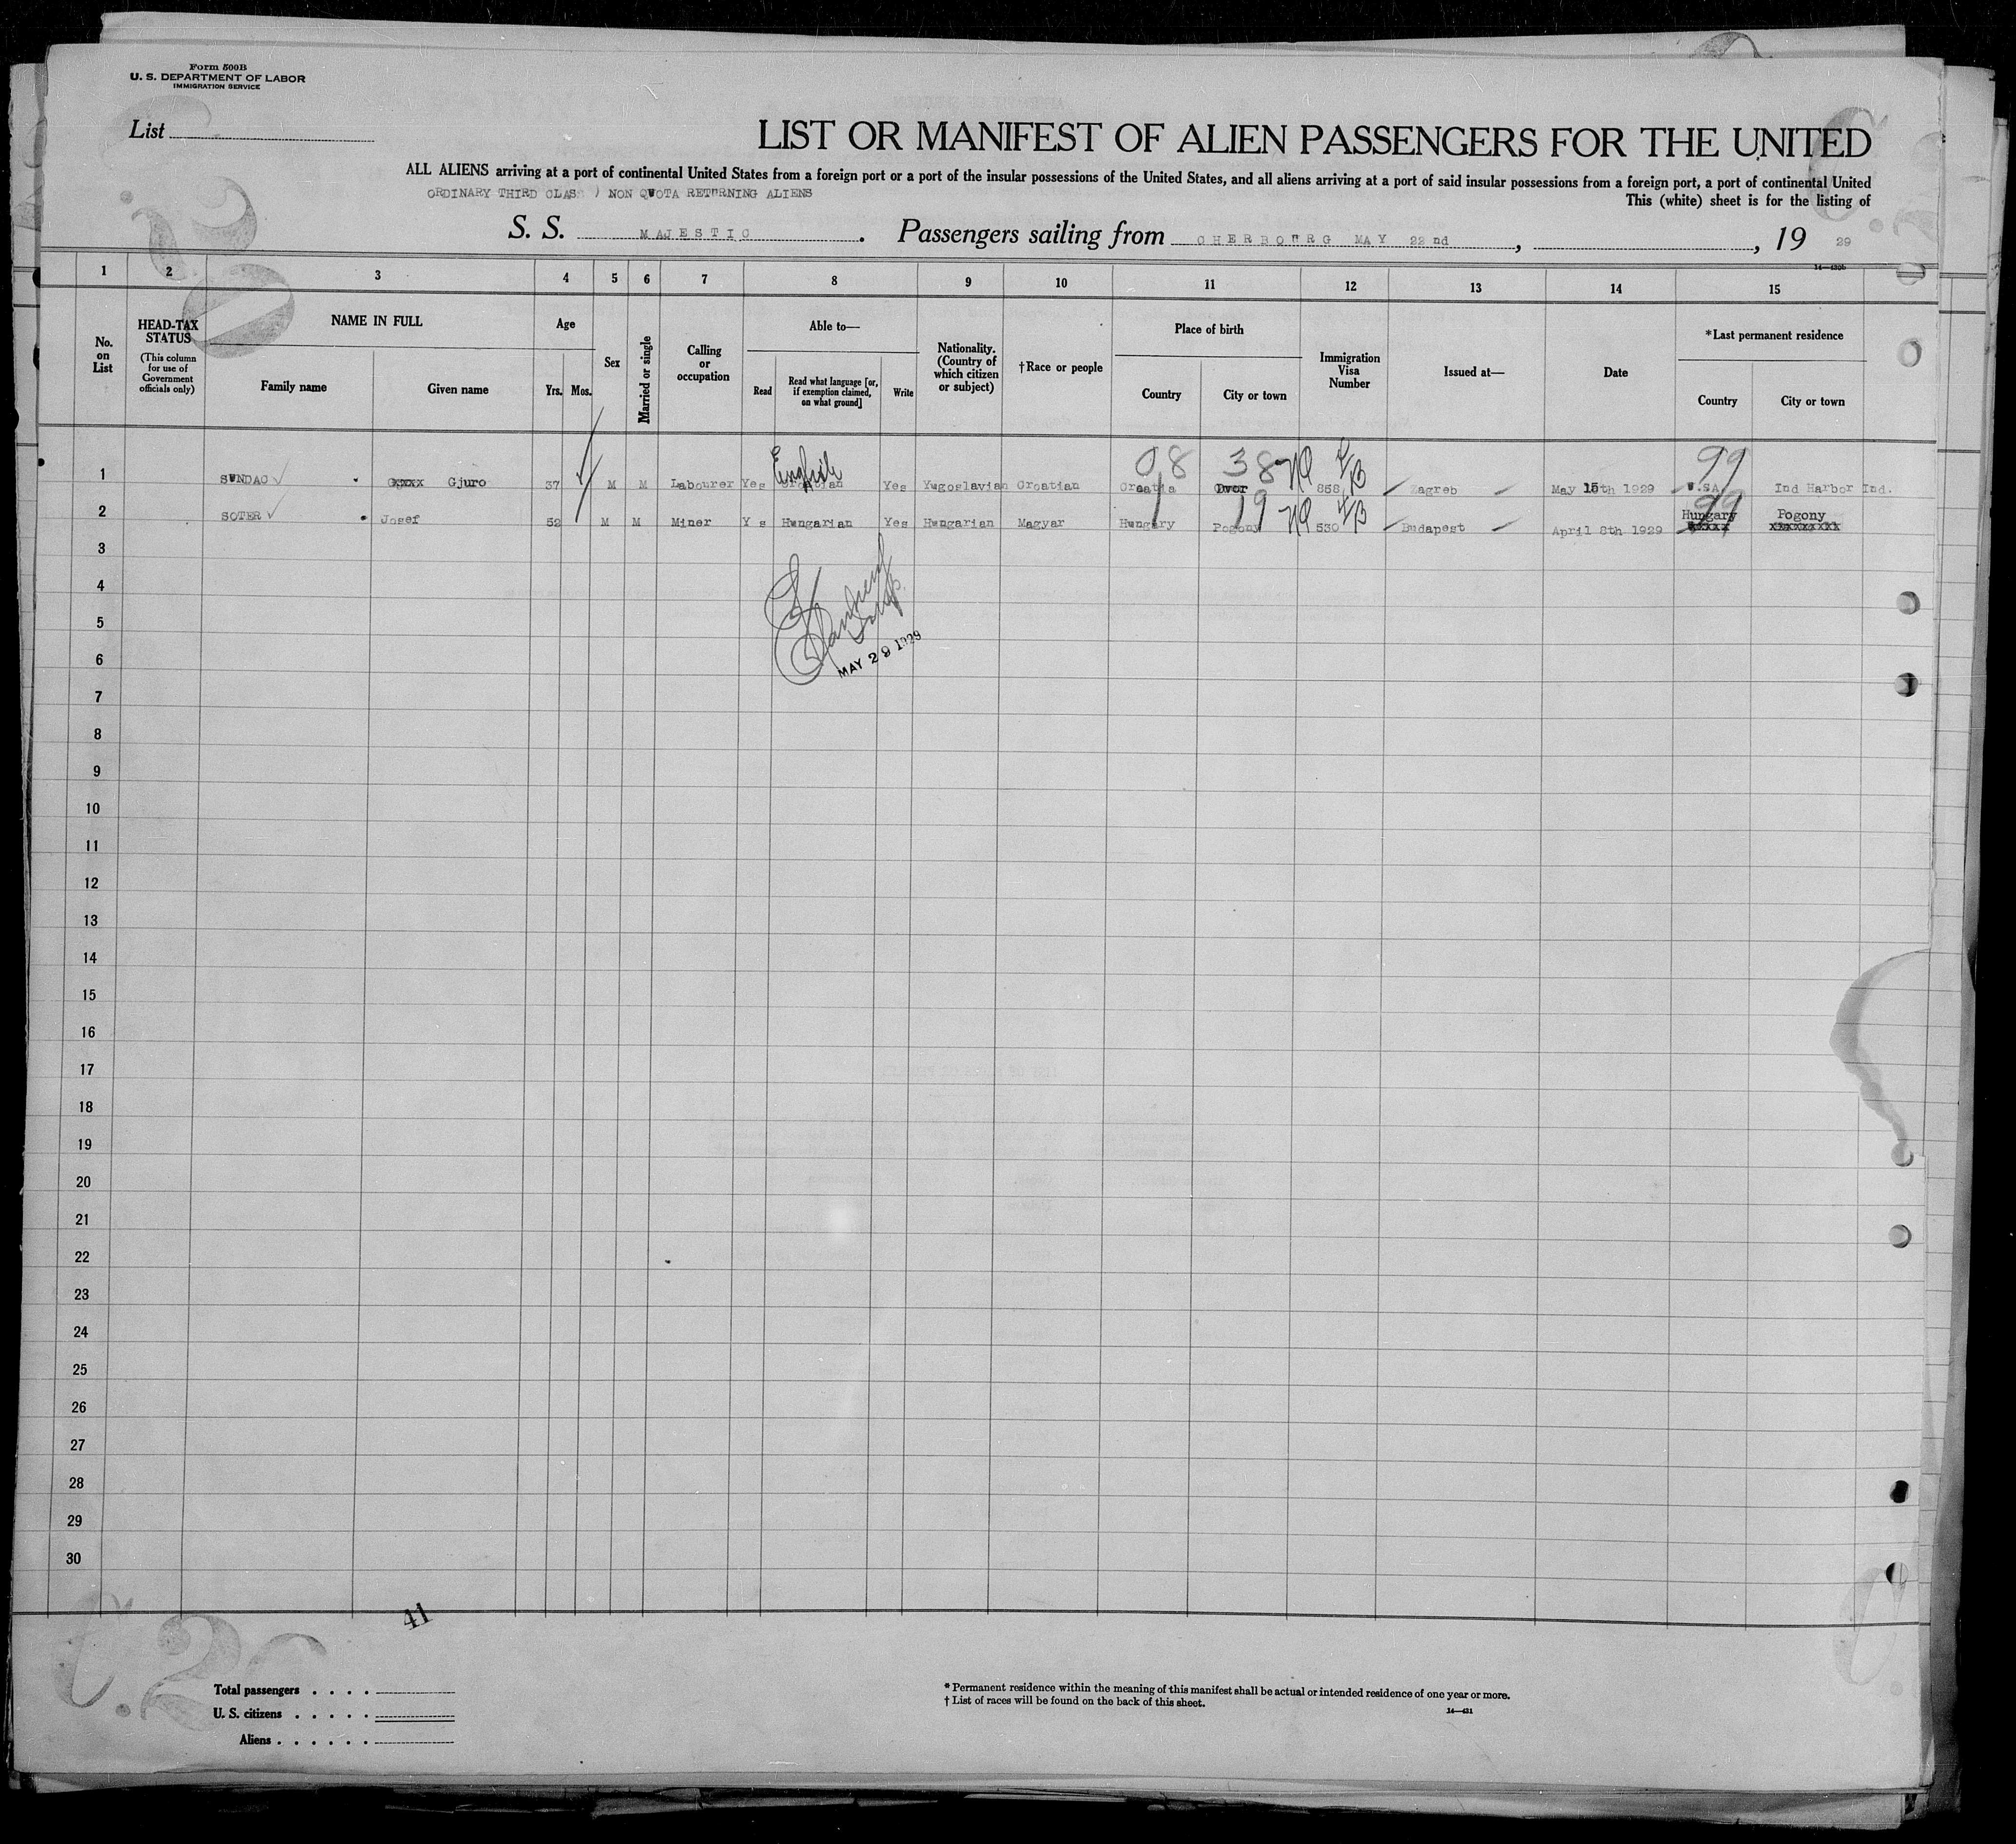 Form 500B
U. S. DEPARTMENT OF LABOR
IMMIGRATION SERVICE
List
LIST OR MANIFEST OF ALIEN PASSENGERS FOR THE UNITED
ALL ALIENS arriving at a port of continental United States from a foreign port or a port of the insular possessions of the United States, and all aliens arriving at a port of said insular possessions from a foreign port, a port of continental United
ORDINARY THIRD CLASS ) NON QUOTA RETURNING ALIENS
This (white) sheet is for the listing of
S. S. MAJESTIC. Passengers sailing from CHERBOURG MAY 22nd, , 19 29
14—430b
1 2 3 4 5 6 7 8 9 10 11 12 13 14 15
No. on List
HEAD-TAX STATUS
(This column for use of Government officials only)
NAME IN FULL
Family name
Given name
Age
Yrs. Mos.
Sex
Married or single
Calling or occupation
Able to—
Read
Read what language [or, if exemption claimed, on what ground]
Write
Nationality. (Country of which citizen or subject)
†Race or people
Place of birth
Country
City or town
Immigration Visa Number
Issued at—
Date
*Last permanent residence
Country
City or town
English 08 38 NQ 4/B 99
1 SUNDAC Gjuro 37 M M Labourer Yes Croatian Yes Yugoslavian Croatian Croatia Dvor 858 Zagreb May 15th 1929 U.SA Ind Harbor Ind.
19 NQ 4/B 99
2 SOTER Josef 52 M M Miner Y s Hungarian Yes Hungarian Magyar Hungary Pogony 530 Budapest April 8th 1929 Hungary Pogony
3
4
5
MAY 29 1929
6
7
8
9
10
11
12
13
14
15
16
17
18
19
20
21
22
23
24
25
26
27
28
29
30
41
Total passengers . . . .
U. S. citizens . . . . .
Aliens . . . . . .
* Permanent residence within the meaning of this manifest shall be actual or intended residence of one year or more.
† List of races will be found on the back of this sheet.
14—431